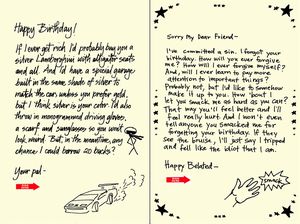 Happy Birthday!
If I ever get rich I'd probably buy you a
silver Lamborghini with alligator seats
and all. And I'd have a special garage
built in the same shade of silver to
match the car, unless you prefer red,
but I think silver is your color. I'd also
throw in monogrammed driving gloves,
a scarf and sunglasses so you won't
look weird. But, in the meantime, any
chance I could borrow 20 bucks?
Your pal-
Sorry My Dear Friend-
I've committed a sin. I forgot your
birthday. How will you ever forgive
me? How will I ever forgive myself?
And, will I ever learn to pay more
attention to important things?
Probably not, but I'd like to somehow
make it up to you. How 'bout I
let you smack me as hard as you can?
That way you'll feel better and I'll
feel really hurt. And I won't even
tell anyone you smacked me for
forgetting your birthday. If they
see the bruise, I'll just say I tripped
and fell like the idiot that I am.
Happy Belated-
SMACK!